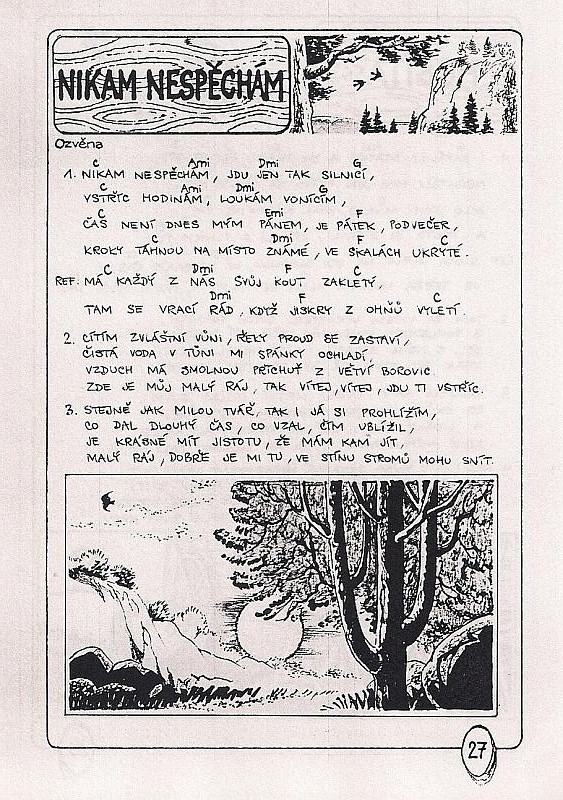 NIKAM NESPĚCHÁM
Ozvěna
C Ami Dmi G
1. NIKAM NESPĚCHÁM, JDU JEN TAK SILNICÍ,
C Ami Dmi G
VSTŘÍC HODINÁM, LOUKÁM VONÍCÍM,
C Emi F
ČAS NENÍ DNES MÝM PÁNEM, JE PÁTEK, PODVEČER,
C Dmi F C
KROKY TÁHNOU NA MÍSTO ZNÁMÉ, VE SKALÁCH UKRYTÉ.
C Dmi F C
REF: MÁ KAŽDÝ Z NÁS SVŮJ KOUT ZAKLETÝ,
Dmi F C
TAM SE VRACÍ RÁD, KDYŽ JISKRY Z OHŇŮ VYLETÍ.
2. CÍTÍM ZVLÁŠTNÍ VŮNI, ŘEKY PROUD SE ZASTAVÍ,
ČISTÁ VODA V TŮNI MI SPÁNKY OCHLADÍ,
VZDUCH MÁ SMOLNOU PŘÍCHUŤ Z VĚTVÍ BOROVIC.
ZDE JE MŮJ MALÝ RÁJ, TAK VÍTEJ, VÍTEJ, JDU TI VSTŘÍC.
3. STEJNĚ JAK MILOU TVÁŘ, TAK I JÁ SI PROHLÍŽÍM,
CO DAL DLOUHÝ ČAS, CO VZAL, ČÍM UBLÍŽIL,
JE KRÁSNÉ MÍT JISTOTU, ŽE MÁM KAM JÍT,
MALÝ RÁJ, DOBŘE JE MI TU, VE STÍNU STROMŮ MOHU SNÍT.
27